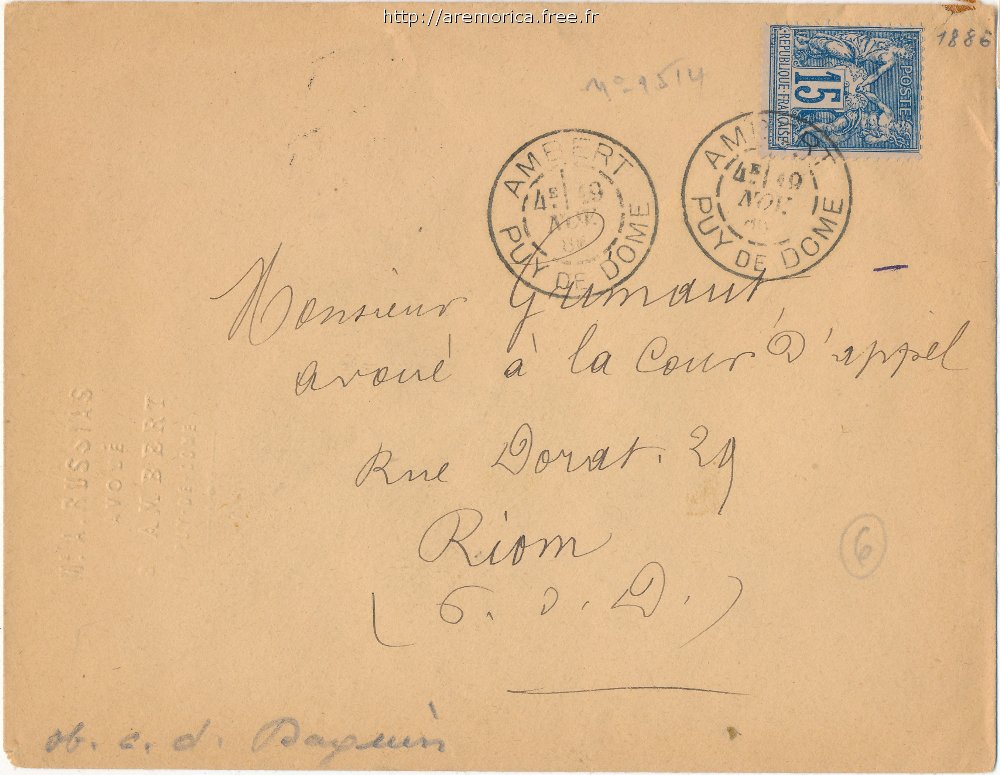 http://aremorica.free.fr
1886
POSTE
15
REPUBLIQUE FRANCAISE
N° 1514
AMBERT
4E 19
NOV.
86
PUY DE DOME
AMBERT
4E 19
NOV.
PUY DE DOME
Monsieur Grimaut
avoué à la Cour D'appel
Rue Dorat. 29
Riom
(P. D. D.)
6
A. RUSSIAS
AVOUÉ
AMBERT
ob. c. d. Daguin